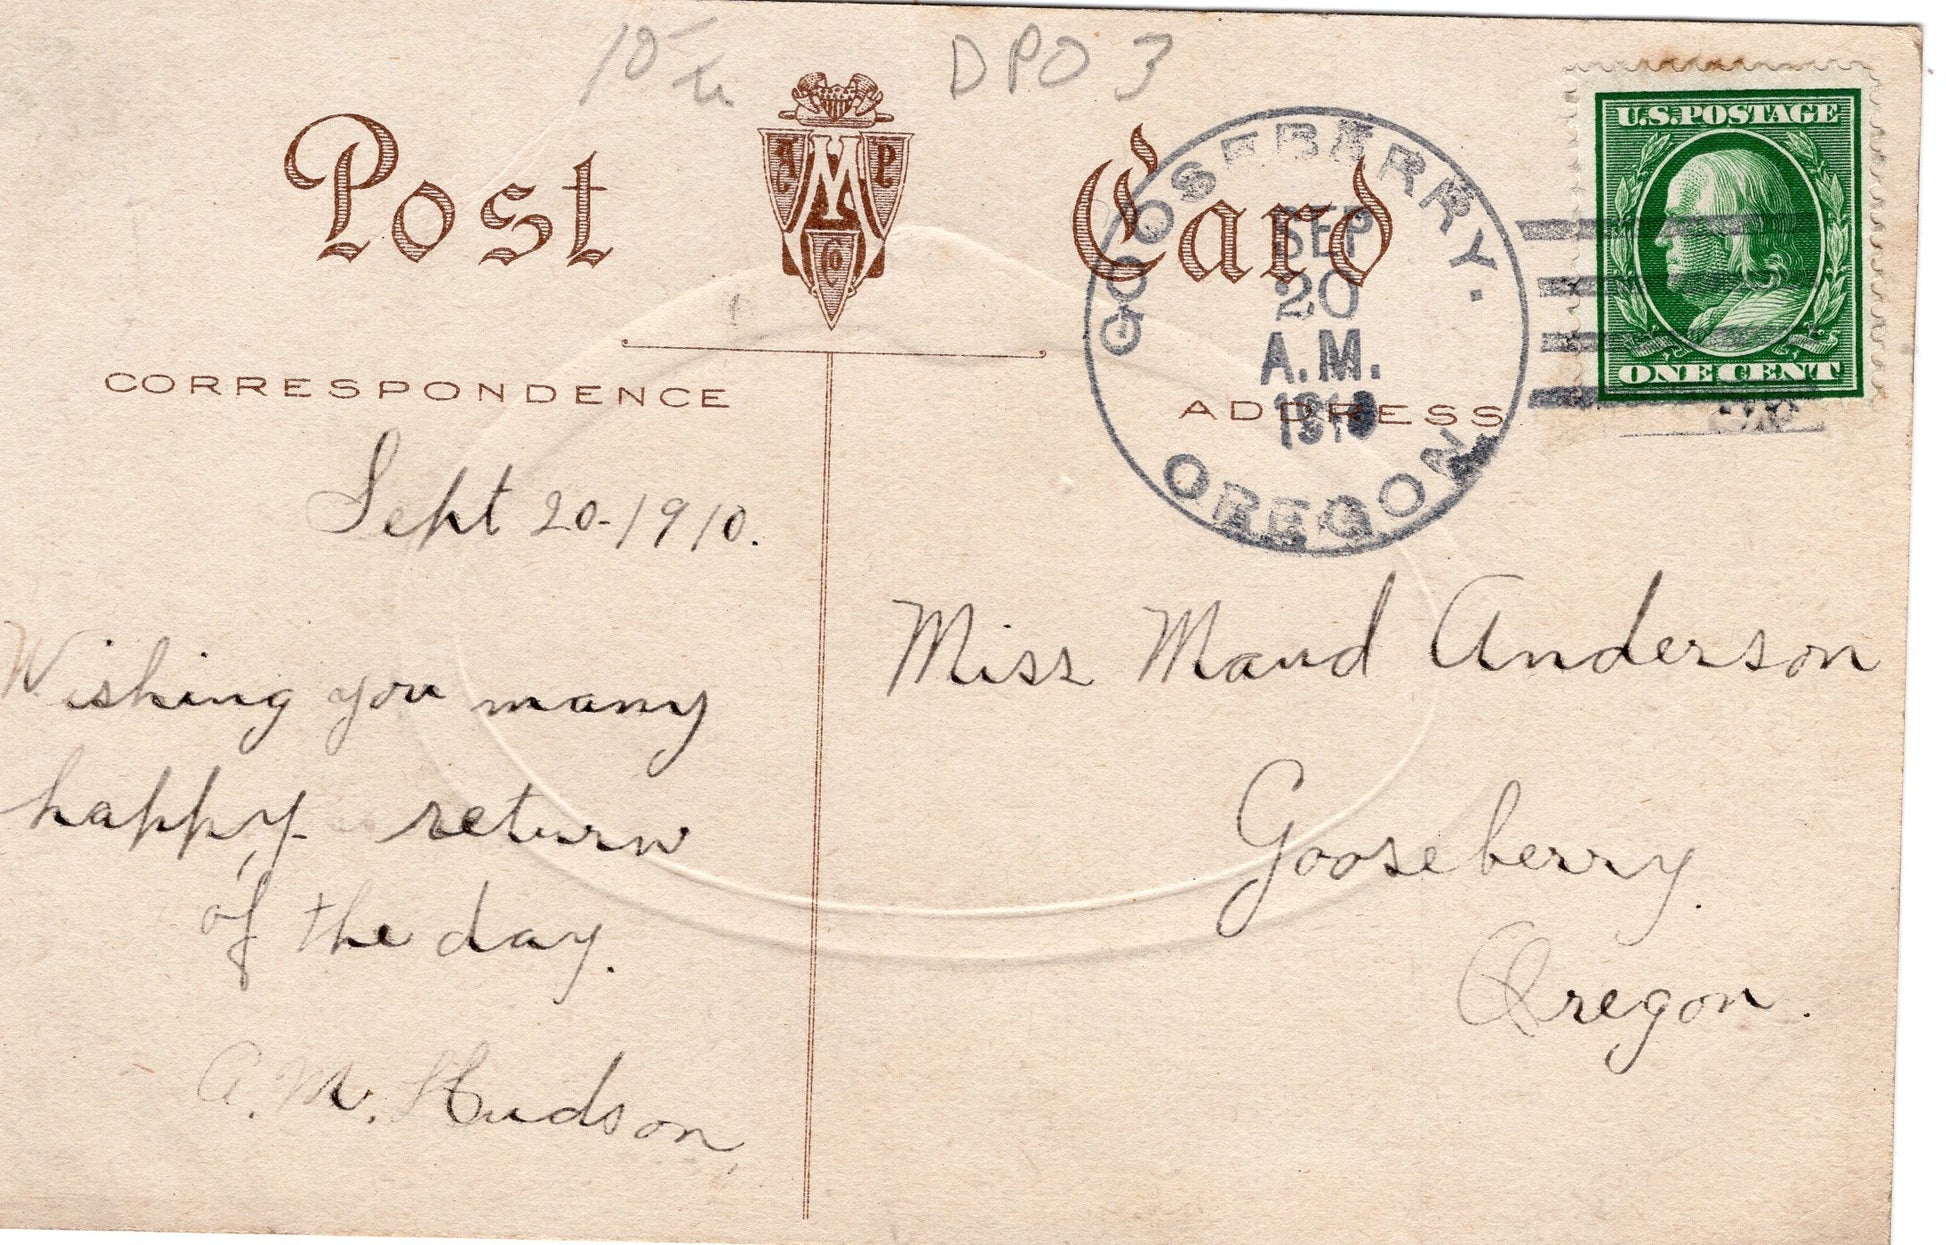 10-
DPO 3
Post Card
A M P
Co
U.S.POSTAGE
ONE CENT
GOOSEBERRY.
SEP
20
A.M.
1910
OREGON
CORRESPONDENCE
ADDRESS
Sept 20-1910.
Wishing you many
happy return
of the day.
A. M. Hudson,
Miss Maud Anderson
Gooseberry.
Oregon.